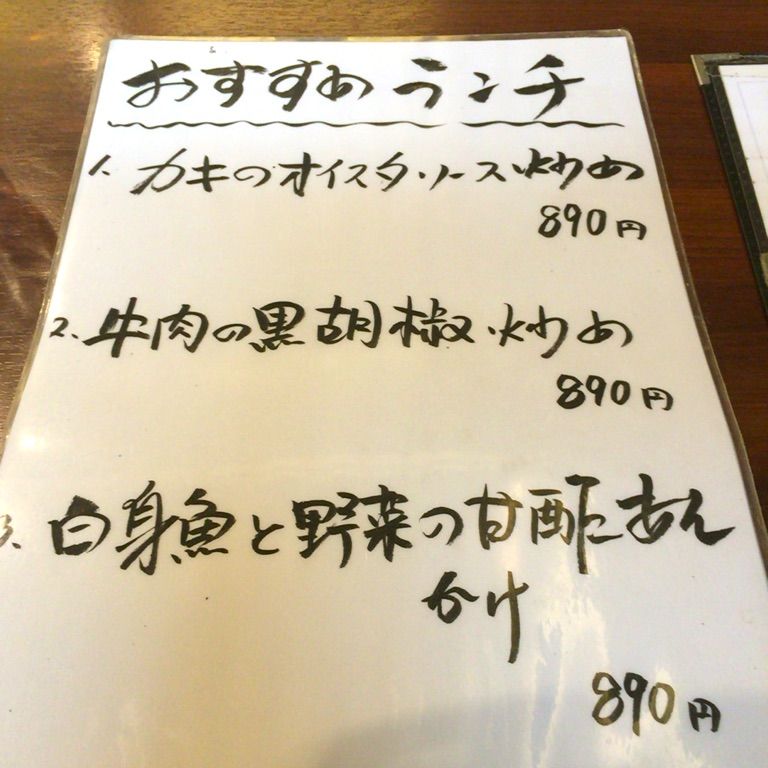 おすすめランチ
1. カキのオイスターソース炒め
890円
2. 牛肉の黒胡椒炒め
890円
3. 白身魚と野菜の甘酢あん
かけ
890円